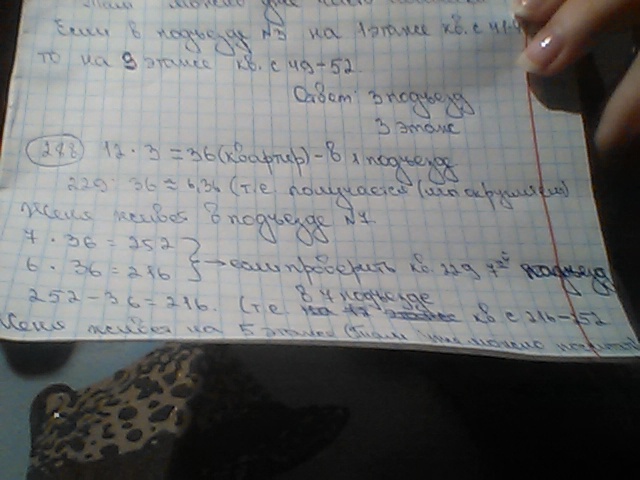 Если в подъезде №3 на 1 этаже кв. с 41-4
то на 3 этаже кв. с 49-52
Ответ: 3 подъезд
3 этаж
278 12 · 3 = 36 (квартир) - в 1 подъезде
229 : 36 ≈ 6,36 (т.е. получается (мы округляем)
Женя живёт в подъезде №7.
7 · 36 = 252
6 · 36 = 216 → проверить кв. 229 7 подъезд
252 - 36 = 216. (т.е. в 7 подъезде кв с 216-252
Женя живёт на 5 этаже (там уже можно